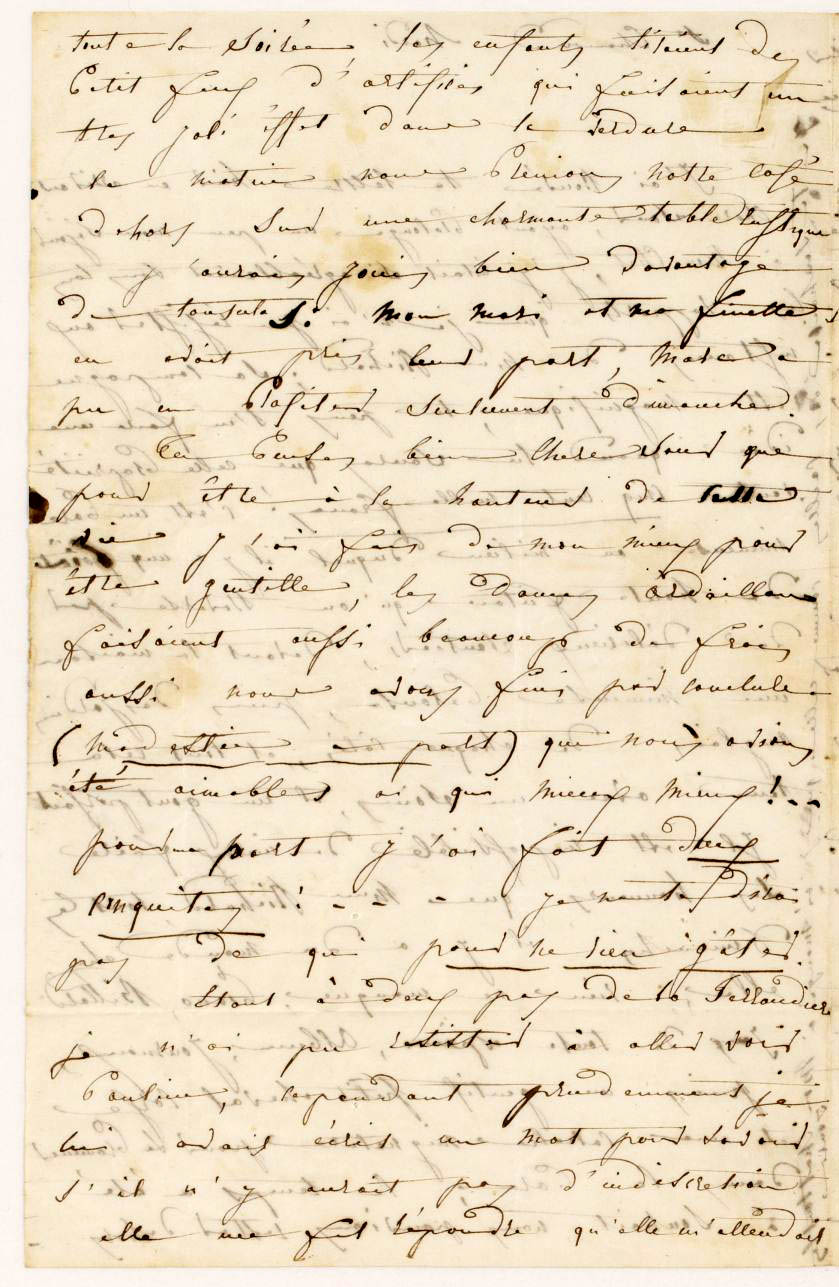 toute la soirée, les enfants tiraient des
petit feux d'artifices qui faisaient un
tres joli éffet dans la verdure
le matin nous prenions notre café
dehors sur une charmante table rustique
j'aurais joui bien davantage
de tout cela si mon mari et ma finette
en avait pris leur part, Marc a
pu en profiter seulement Dimanche.
Tu penses bien chere soeur que
pour être à la hauteur de cette
vie j'ai fais de mon mieux pour
être gentille, les dames Ardaillon
faisaient aussi beaucoup de frais
aussi nous avons fini par conclure
(modestie a part) que nous avions
été aimables a qui mieux mieux!..
pour ma part j'ai fait deux
conquites! - - - je ne te dirai
pas de qui pour ne rien gâter.
Etant à deux pas de la Ferrandière
je n'ai pu resister à aller voir
Pauline, cependant prudemment je
lui avais écris un mot pour savoir
s'il n'y aurait pas d'indiscretion
elle me fit répondre qu'elle m'attendait